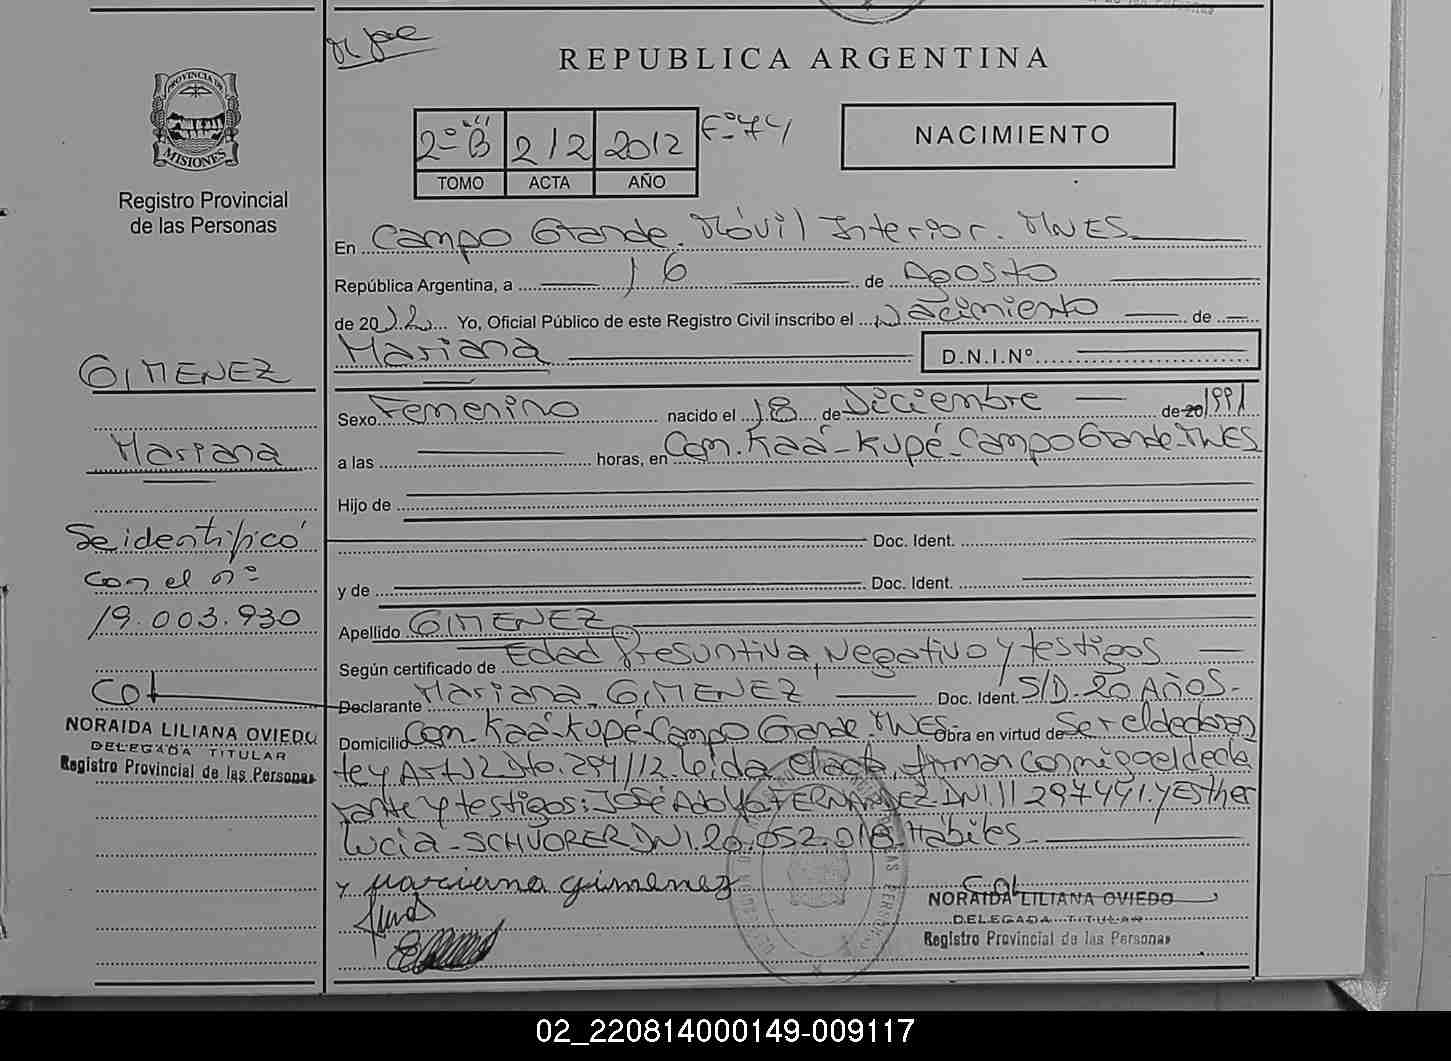 REPUBLICA ARGENTINA
PROVINCIA DE
MISIONES
Registro Provincial
de las Personas
2º "B" 212 2012 Fº 74
TOMO ACTA AÑO
NACIMIENTO
En Campo Grande. Móvil Interior. MNES
República Argentina, a 16 de Agosto
de 2012 Yo, Oficial Público de este Registro Civil inscribo el Nacimiento de
Mariana D.N.I.Nº
GIMENEZ
Mariana
Sexo Femenino nacido el 18 de Diciembre de 20 1991
a las horas, en Com. Kaá-Kupé-Campo Grande. MNES
Hijo de
Doc. Ident.
y de Doc. Ident.
Se identificó
con el nº
19.003.930
NORAIDA LILIANA OVIEDO
DELEGADA TITULAR
Registro Provincial de las Personas
Apellido GIMENEZ
Según certificado de Edad Presuntiva, Negativo y testigos
Declarante Mariana GIMENEZ Doc. Ident. S/D. 20 AÑOS.
Domicilio Com. Kaá-Kupé-Campo Grande. MNES Obra en virtud de Ser el declaran
te y Art. 2 Dto. 294/12. Leída el acta, firman conmigo el decla
rante y testigos: José Adolfo FERNANDEZ DNI. 11 297441. y Esther
Lucia SCHVORER DNI. 20.052.018 Hábiles
mariana gimenez
NORAIDA LILIANA OVIEDO
DELEGADA TITULAR
Registro Provincial de las Personas
02_220814000149-009117